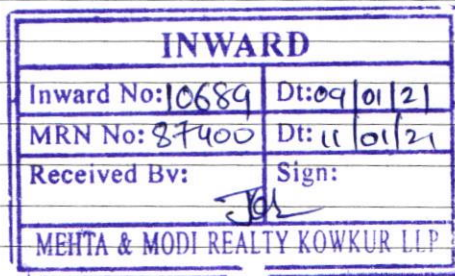 INWARD
Inward No: 10689 Dt: 09/01/21
MRN No: 87400 Dt: 11/01/21
Received By: Sign:
MEHTA & MODI REALTY KOWKUR LLP